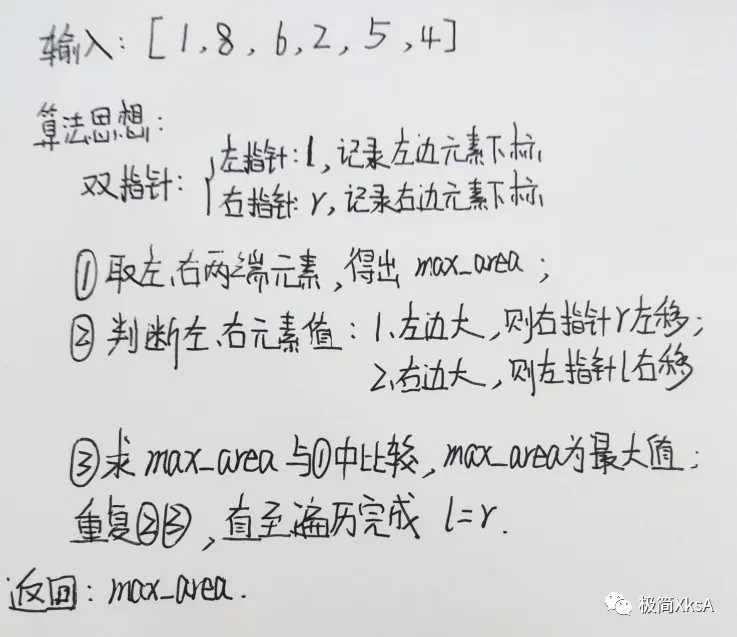 输入：[1,8,6,2,5,4]
算法思想：
双指针：
左指针：l,记录左边元素下标、
右指针：r,记录右边元素下标、
①取左、右两端元素,得出 max_area；
②判断左、右元素值：1、左边大,则右指针r左移；
2、右边大,则左指针l右移
③求max_area与①中比较,max_area为最大值；
重复②③,直至遍历完成 l=r.
返回：max_area.
极简XksA